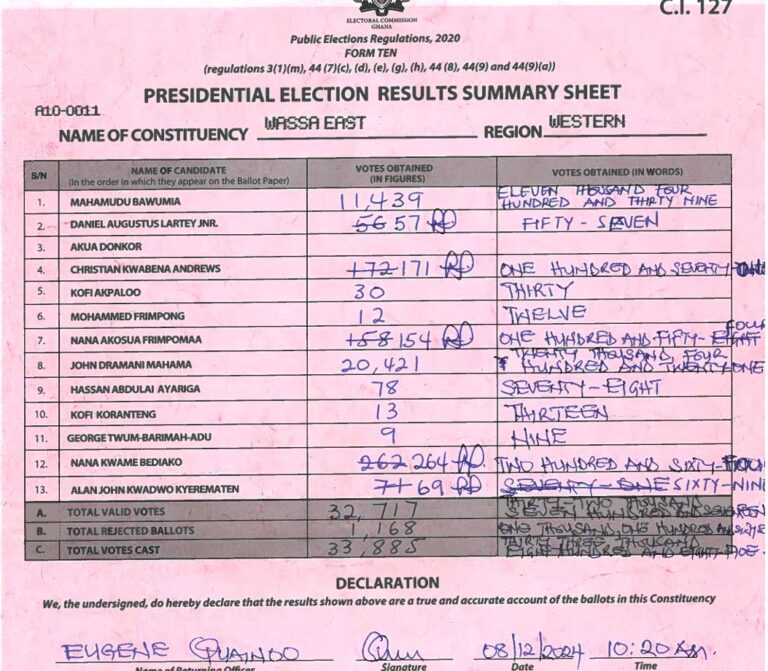 C.I. 127
ELECTORAL COMMISSION
GHANA
Public Elections Regulations, 2020
FORM TEN
(regulations 3(1)(m), 44 (7)(c), (d), (e), (g), (h), 44 (8), 44(9) and 44(9)(a))
PRESIDENTIAL ELECTION RESULTS SUMMARY SHEET
A10-0011
NAME OF CONSTITUENCY WASSA EAST REGION WESTERN
S/N NAME OF CANDIDATE (In the order in which they appear on the Ballot Paper) VOTES OBTAINED (IN FIGURES) VOTES OBTAINED (IN WORDS)
1. MAHAMUDU BAWUMIA 11,439 ELEVEN THOUSAND FOUR HUNDRED AND THIRTY NINE
2. DANIEL AUGUSTUS LARTEY JNR. 56 57 FIFTY-SEVEN
3. AKUA DONKOR
4. CHRISTIAN KWABENA ANDREWS 172 171 ONE HUNDRED AND SEVENTY-
5. KOFI AKPALOO 30 THIRTY
6. MOHAMMED FRIMPONG 12 TWELVE
7. NANA AKOSUA FRIMPOMAA 158 154 ONE HUNDRED AND FIFTY-EIGHT FOUR
8. JOHN DRAMANI MAHAMA 20,421 TWENTY THOUSAND, FOUR HUNDRED AND TWENTY-ONE
9. HASSAN ABDULAI AYARIGA 78 SEVENTY-EIGHT
10. KOFI KORANTENG 13 THIRTEEN
11. GEORGE TWUM-BARIMAH-ADU 9 NINE
12. NANA KWAME BEDIAKO 262 264 TWO HUNDRED AND SIXTY-FOUR
13. ALAN JOHN KWADWO KYEREMATEN 71 69 SEVENTY-ONE SIXTY-NINE
A. TOTAL VALID VOTES 32,717 THIRTY TWO THOUSAND SEVEN HUNDRED AND SEVENTEEN
B. TOTAL REJECTED BALLOTS 1,168 ONE THOUSAND, ONE HUNDRED AND
C. TOTAL VOTES CAST 33,885 THIRTY THREE THOUSAND EIGHT HUNDRED AND EIGHTY-FIVE
DECLARATION
We, the undersigned, do hereby declare that the results shown above are a true and accurate account of the ballots in this Constituency
EUGENE QUAINOO 08/12/2024 10:20 AM.
Name of Returning Officer Signature Date Time